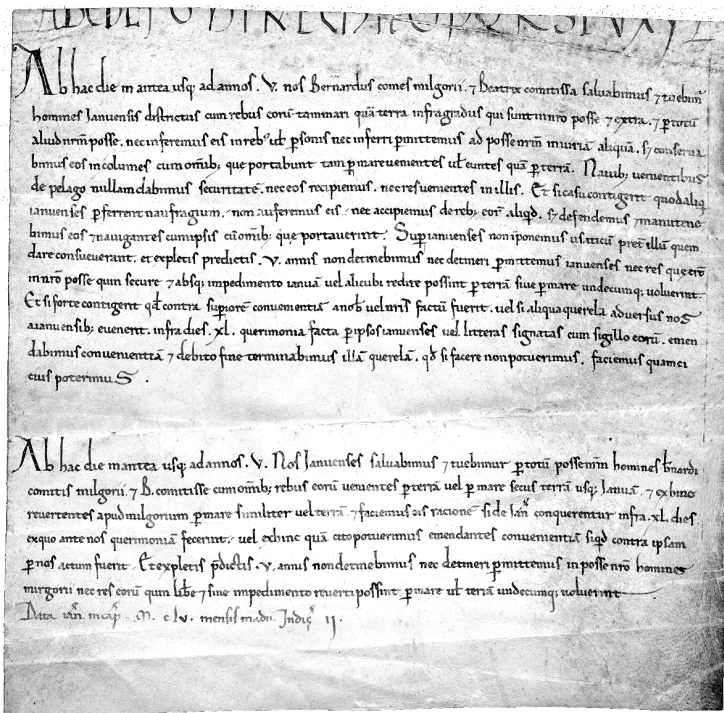 ABCDEFGHIKLMNOPQRSTVXYZ
Ab hac die in antea usq; ad annos .V. nos Bernardus comes milgorii. ⁊ Beatrix comitissa saluabimus ⁊ tuebim̄
homines Januensis districtus cum rebus eorū tam mari quā terra infra gradus qui sunt in nr̄o posse ⁊ extra. ⁊ ꝑ totū
aliud nr̄m posse. nec inferemus eis in reb; ul̄ ꝑsonis nec inferri ꝑmittemus ad posse nr̄m iniuriā aliquā. s; conserua
bimus eos incolumes cum om̄ib; que portabunt tam ꝑ mare uenientes ul̄ euntes quā ꝑ terrā. Nauib; uenientibus
de pelago nullam dabimus securitatē. nec eos recipiemus. nec res uenientes in illis. Et si casu contigerit quod aliq
ianuenses ꝑferrent naufragium. non auferemus eis. nec accipiemus de reb; eorū aliqd. s; defendemus ⁊ manutene
bimus eos ⁊ nauigantes cum ipsis cū om̄ib; que portauerint. Suꝑ ianuenses non iponemus usaticū preter illū quem
dare consueuerant. et expletis predictis .V. annis non detinebimus nec detineri ꝑmittemus ianuenses nec res que erūt
in nr̄o posse quin secure ⁊ absq; impedimento ianuā uel alicubi redire possint ꝑ terrā siue ꝑ mare undecunq; uoluerint.
Et si forte contigerit qd̄ contra suꝑiorē conuenientiā a nob̄ uel nr̄is factū fuerit. uel si aliqua querela aduersus nos
a ianuensib; euenerit. infra dies .XL. querimonia facta ꝑ ipsos ianuenses uel litteras signatas cum sigillo eorū. emen
dabimus conuenientiā ⁊ debito fine terminabimus illā querelā. qd̄ si facere non potuerimus. faciemus quam ci
cius poterimuS .
Ab hac die in antea usq; ad annos .V. Nos Januenses saluabimus ⁊ tuebimur ꝑ totū posse nr̄m homines b̄nardi
comitis milgorii. ⁊ B. comitisse cum om̄ib; rebus eorū uenientes ꝑ terrā uel ꝑ mare secus terrā usq; Januā. ⁊ ex hinc
reuertentes apud milgorium ꝑ mare similiter uel terrā. ⁊ faciemus eis racionē si de Ian̄ conquerentur infra .XL. dies
ex quo ante nos querimoniā fecerint. uel ex hinc quā cito potuerimus emendantes conuenientiā siqd̄ contra ipsam
ꝑ nos actum fuerit. Et expletis p̄dictis .V. annis non detinebimus nec detineri ꝑmittemus in posse nr̄o homines
mirgorii nec res eorū quin libere ⁊ sine impedimento reuerti possint ꝑ mare ul̄ terrā undecunq; uoluerint
Data ian̄ in cap̄. M. c lv. mensis madii. Indic̄ ii.